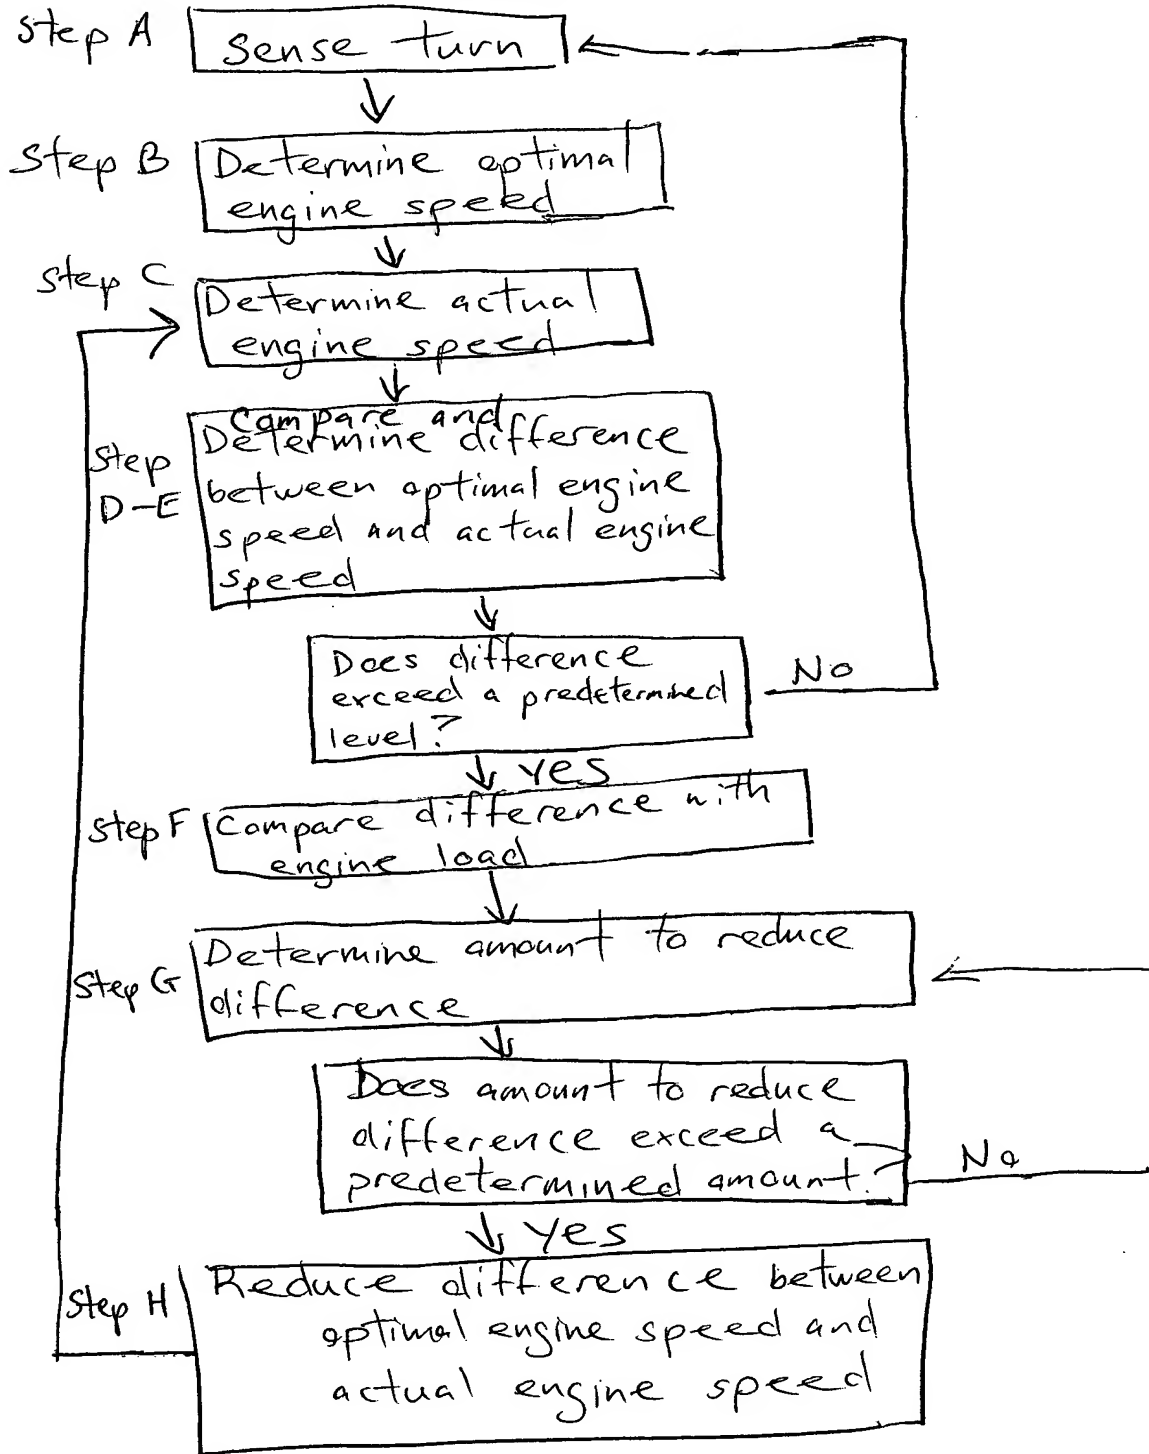 Step A
Sense turn
Step B
Determine optimal
engine speed
Step C
Determine actual
engine speed
Step
D-E
Compare and
Determine difference
between optimal engine
speed and actual engine
speed
Does difference
exceed a predetermined
level?
No
Yes
Step F
Compare difference with
engine load
Step G
Determine amount to reduce
difference
Does amount to reduce
difference exceed a
predetermined amount?
No
Yes
Step H
Reduce difference between
optimal engine speed and
actual engine speed